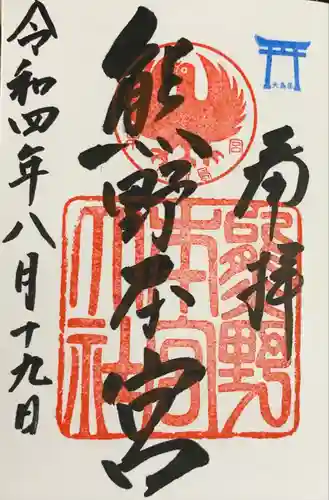 大鳥居
奉拝
熊野本宮
令和四年八月十九日
熊野
本宮
大社